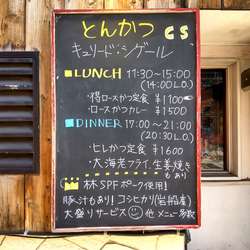 とんかつ CS
キュリード:シゲール
LUNCH 11:30~15:00
(14:00 L.O.)
・特ロースかつ定食 ¥1100
・ロースカツカレー ¥1500
DINNER 17:00~21:00
(20:30 L.O.)
・ヒレかつ定食 ¥1600
・大海老フライ、生姜焼き
もあり
林SPFポーク使用!
豚汁もあり! コシヒカリ(岩船産)
大盛りサービス 他メニュー多数